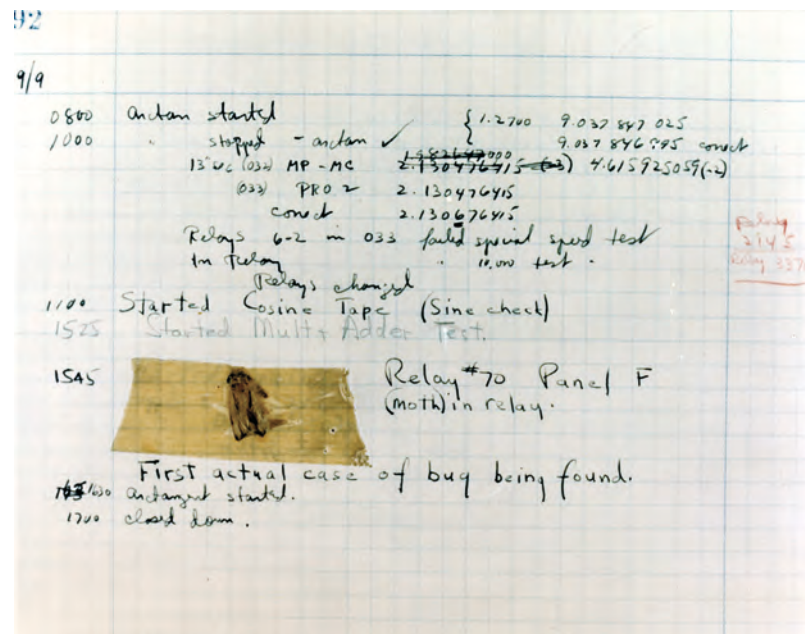 92
9/9
0800 arctan started { 1.2700 9.037 847 025
1000 " stopped - arctan ✓ 9.037 846 995 correct
13"uc (032) MP - MC 1.982647000 2.130476415 (-3) 4.615925059(-2)
(033) PRO 2 2.130476415
correct 2.130676415
Relays 6-2 in 033 failed special speed test
In Relay " 10,000 test .
Relays changed
Relay
2145
Relay 3370
1100 Started Cosine Tape (Sine check)
1525 Started Mult + Adder Test.
1545 Relay #70 Panel F
(moth) in relay.
First actual case of bug being found.
1630 arctangent started.
1700 closed down.